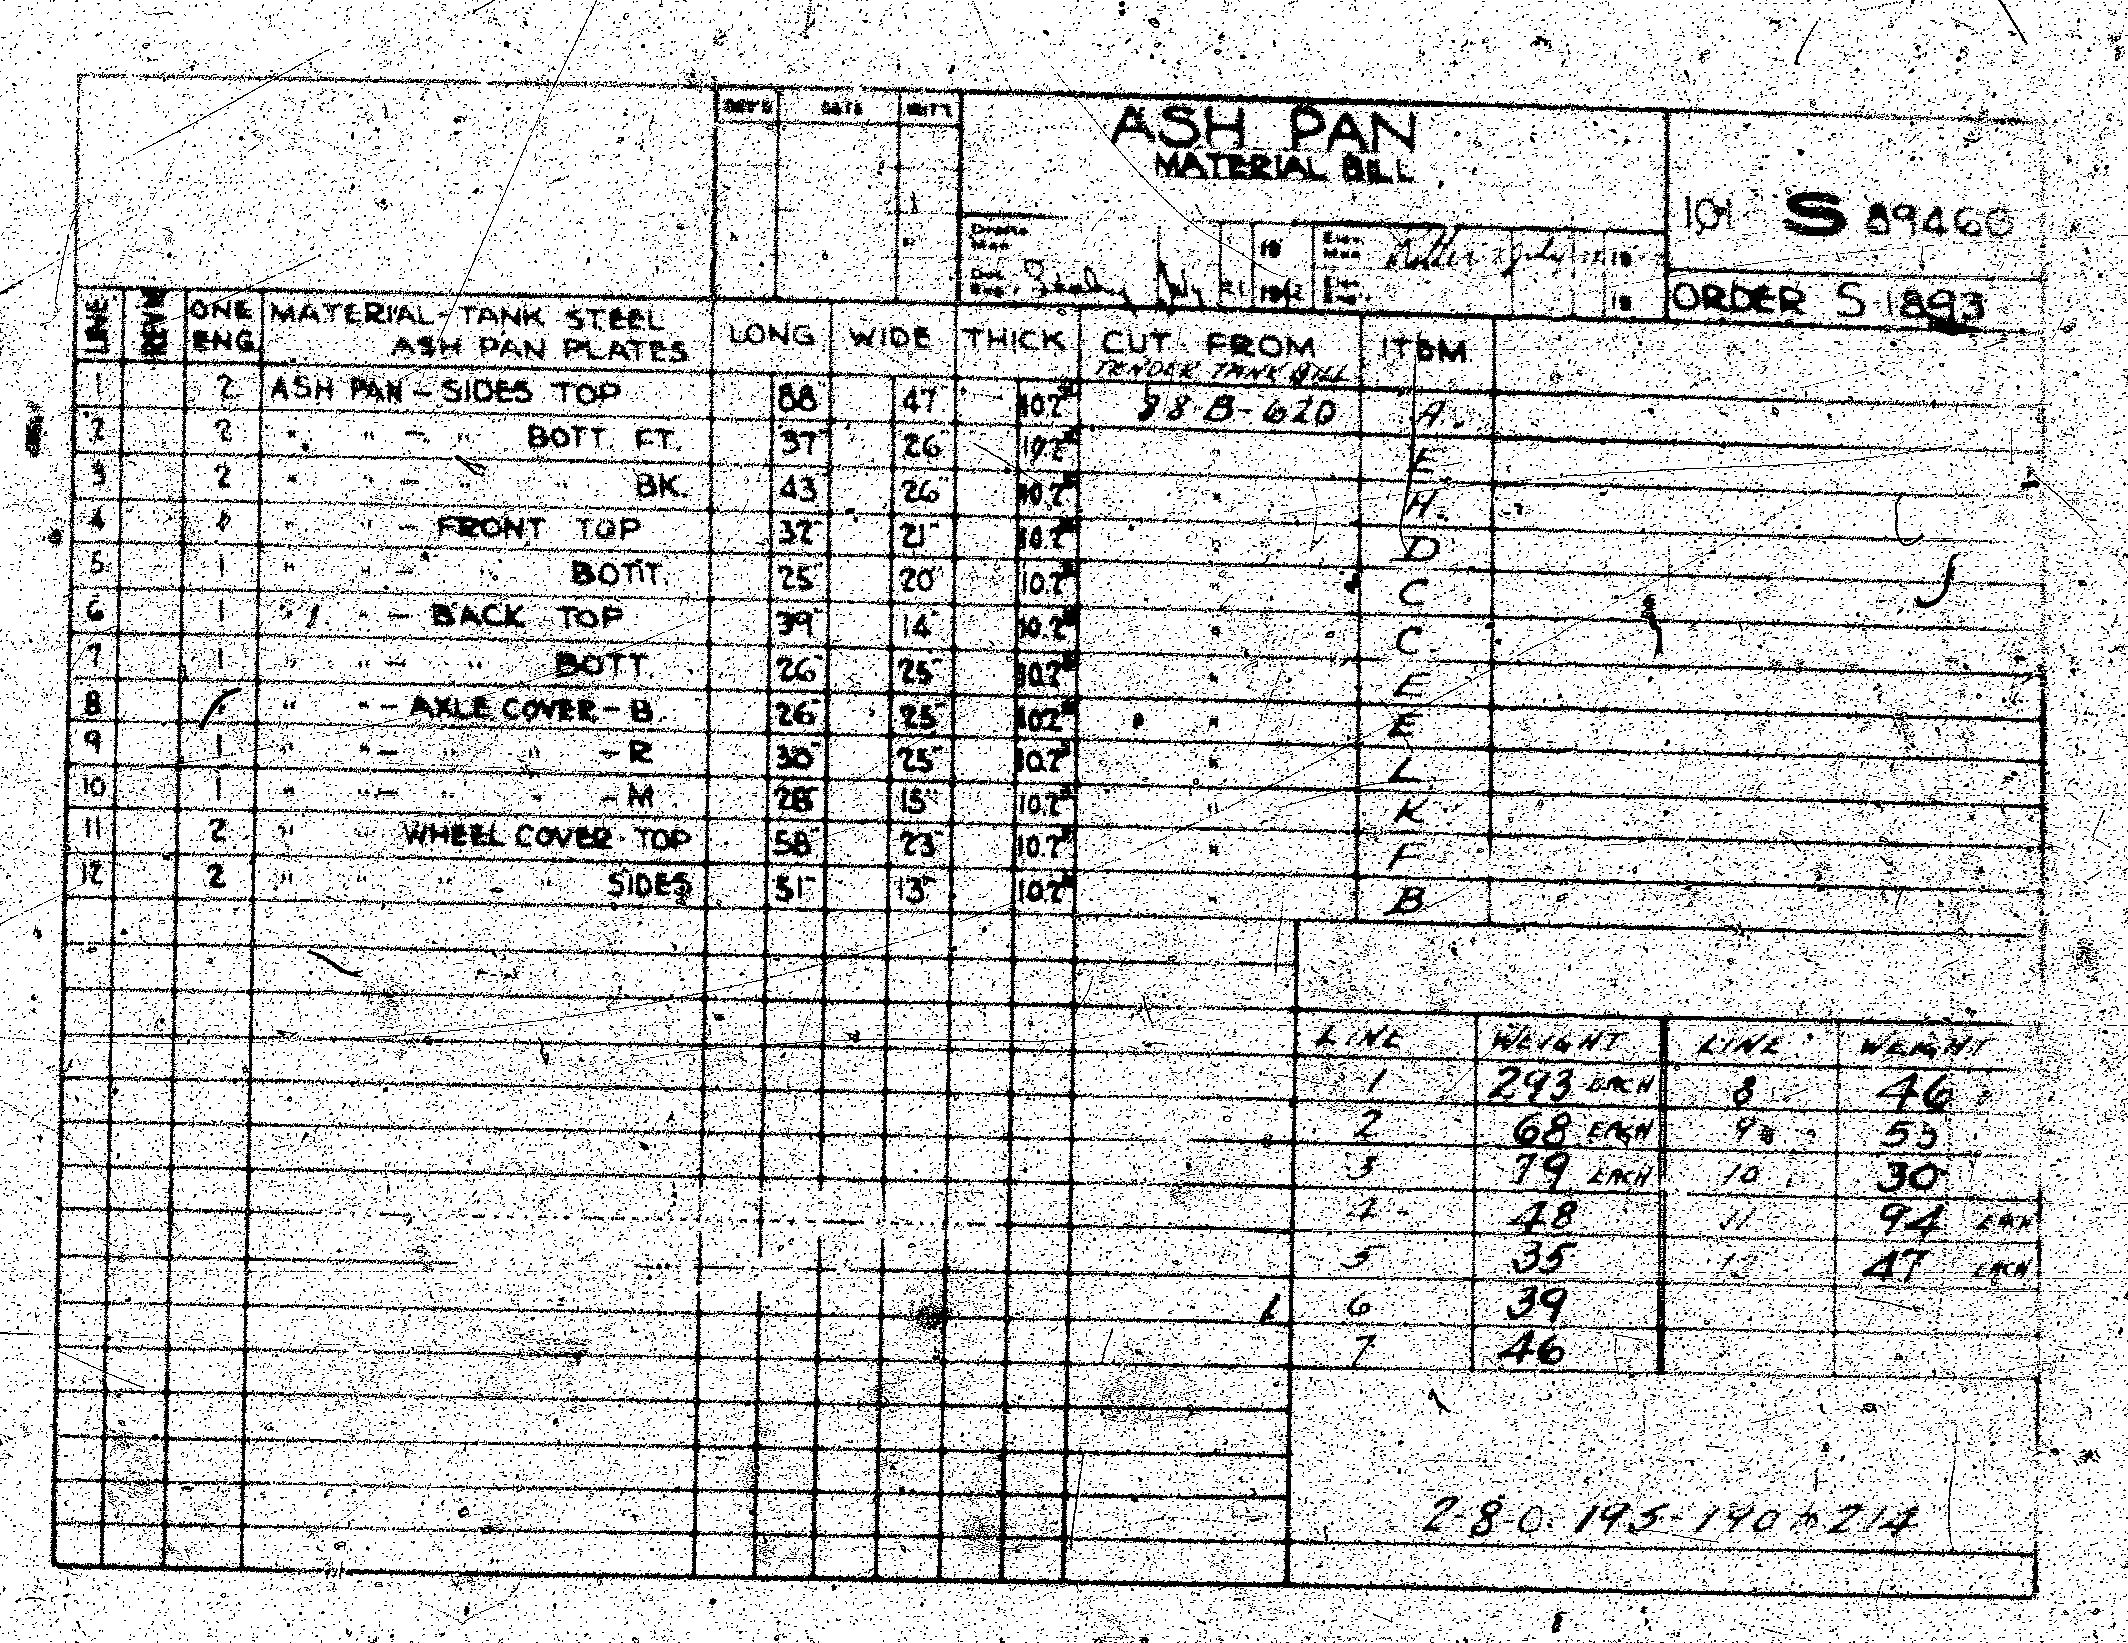 DATE
ASH PAN
MATERIAL BILL
S 89460
ORDER S 1893
LINE ONE ENG. MATERIAL - TANK STEEL ASH PAN PLATES LONG WIDE THICK CUT FROM TENDER TANK BILL ITEM
1 2 ASH PAN - SIDES TOP 88" 47" 10.2# 88-B-620 A.
2 2 " " - " BOTT. FT. 37" 26" 10.2# " E.
3 2 " " - " " BK. 43" 26" 10.2# " H.
4 1 " " - FRONT TOP 32" 21" 10.2# " D
5 1 " " - " BOTT. 25" 20" 10.2# " C
6 1 " " - BACK TOP 39" 14" 10.2# " C
7 1 " " - " BOTT. 26" 25" 10.2# " E
8 1 " " - AXLE COVER - B 26" 25" 10.2# " E
9 1 " " - " " - R 30" 25" 10.2# " L
10 1 " " - " " - M 28" 15" 10.2# " K
11 2 " " WHEEL COVER TOP 58" 23" 10.2# " F
12 2 " " " - " SIDES 51" 13" 10.2# " B
LINE WEIGHT LINE WEIGHT
1 293 EACH 8 46
2 68 EACH 9 55
3 79 EACH 10 30
4 48 11 94 EACH
5 35 12 47 EACH
6 39
7 46
2-8-0. 195-190 to 214